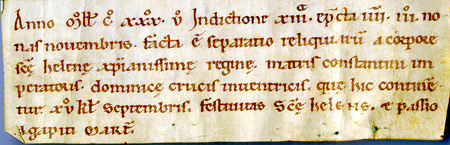 Anno m̄ll̄ c̄ xxx. v̄ Indictione xiii. ep̄cta iiii. iii. no
nas novembris. facta ē separatio reliquiarū a corpore
sc̄ę helenę xp̄ianissimę reginę. matris constantini im
peratoris. dominicę crucis inventricis. quę hic contine
tur. xv kl̄ Septembris. festivitas Sc̄ę helenę. & passio
agapiti mart̄.